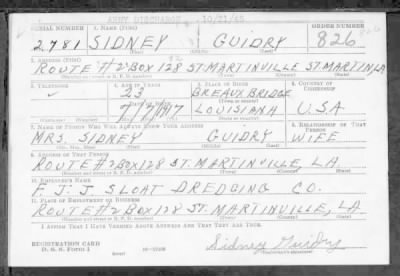 ARMY DISCHARGE 10/21/45
SERIAL NUMBER 1. NAME (Print) ORDER NUMBER
2781 SIDNEY GUIDRY 826
2. ADDRESS (Print)
ROUTE #2 BOX 128 ST. MARTINVILLE ST. MARTIN, LA
3. TELEPHONE 4. AGE IN YEARS 5. PLACE OF BIRTH 6. COUNTRY OF CITIZENSHIP
23 BREAUX BRIDGE
LOUISIANA U.S.A
7. NAME OF PERSON WHO WILL ALWAYS KNOW YOUR ADDRESS 8. RELATIONSHIP OF THAT PERSON
MRS. SIDNEY GUIDRY WIFE
9. ADDRESS OF THAT PERSON
ROUTE #2 BOX 128 ST. MARTINVILLE, LA
10. EMPLOYER'S NAME
F. J. J. SLOAT DREDGING CO.
11. PLACE OF EMPLOYMENT OR BUSINESS
ROUTE #2 BOX 128 ST. MARTINVILLE, LA
I AFFIRM THAT I HAVE VERIFIED ABOVE ANSWERS AND THAT THEY ARE TRUE.
REGISTRATION CARD
D. S. S. Form 1 (over) Sidney Guidry